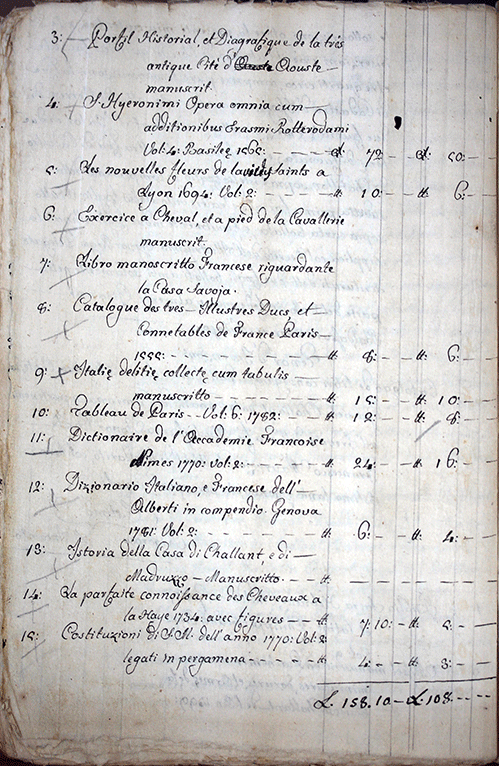 3: Portfl Historial, et Diagrafique de la trés
antique Cité d'Aouste Aouste
manuscrit.
4: S. Hyeronimi Opera omnia cum
additionibus Erasmi Rotterodami
Vol: 4: Basileę 1565: - - - - £: 72: - - £: 50: - -
5: Les nouvelles fleurs de la vie des saints a
Lyon 1694: Vol: 2: - - - - - - #: 10: - - #: 6: -
6: Exercice a Cheval, et a pied de la Cavallerie
manuscrit.
7: Libro manoscritto Francese riguardante
la Casa Savoja.
8: Catalogue des tres Illustres Ducs, et
Connetables de France Paris
1555: - - - - - - - - - #: 8: - - #: 6: - -
9: Italię delitię collectę cum tabulis
manuscritto - - - - - - #: 15: - - #: 10: - -
10: Tableau de Paris Vol: 6: 1782: - - #: 12: - - #: 8: -
11: Dictionaire de l'Accademie Francoise
Nimes 1770: vol: 2: - - - - - #: 24: - - #: 16: - -
12: Dizionario Italiano, e Francese dell'
Alberti in compendio Genova
1781: Vol: 2: - - - - - - - #: 6: - - #: 4: - -
13: Istoria della Casa di Challant, e di
Madruzzo - Manuscritto. - - #: - - - - - -
14: La parfaite connoissance des Cheveaux a
la Haye 1734: avec figures - - #: 7: 10: - #: 5: - -
15: Costituzioni di S. M. dell'anno 1770: Vol: 2:
legati in pergamena - - - - - #: 4: - - #: 3: - -
£. 158. 10 - £. 108: - -